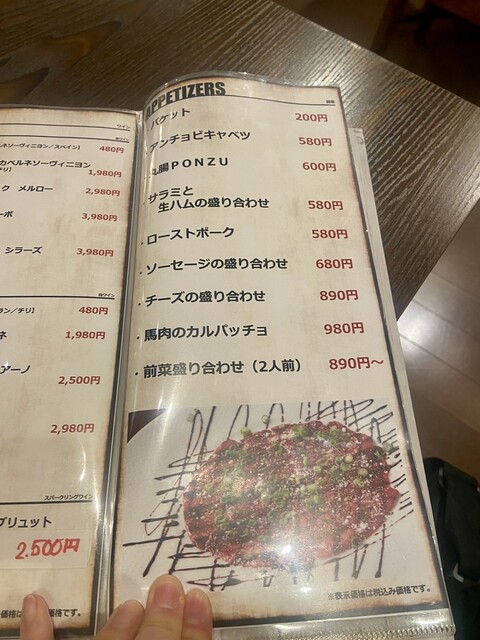 ワイン
ルネソーヴィニヨン/スペイン】 480円
カベルネソーヴィニヨン
チリ】 1,980円
ク メルロー 2,980円
ーボ 3,980円
シラーズ 3,980円
白ワイン
ラン/チリ】 480円
ネ 1,980円
アーノ 2,500円
2,980円
スパークリングワイン
ブリュット
2.500円
価格は税込み価格です。
APPETIZERS
前菜
バケット 200円
・アンチョビキャベツ 580円
丸腸PONZU 600円
・サラミと
生ハムの盛り合わせ 580円
・ローストポーク 580円
・ソーセージの盛り合わせ 680円
・チーズの盛り合わせ 890円
・馬肉のカルパッチョ 980円
・前菜盛り合わせ(2人前) 890円〜
※表示価格は税込み価格です。